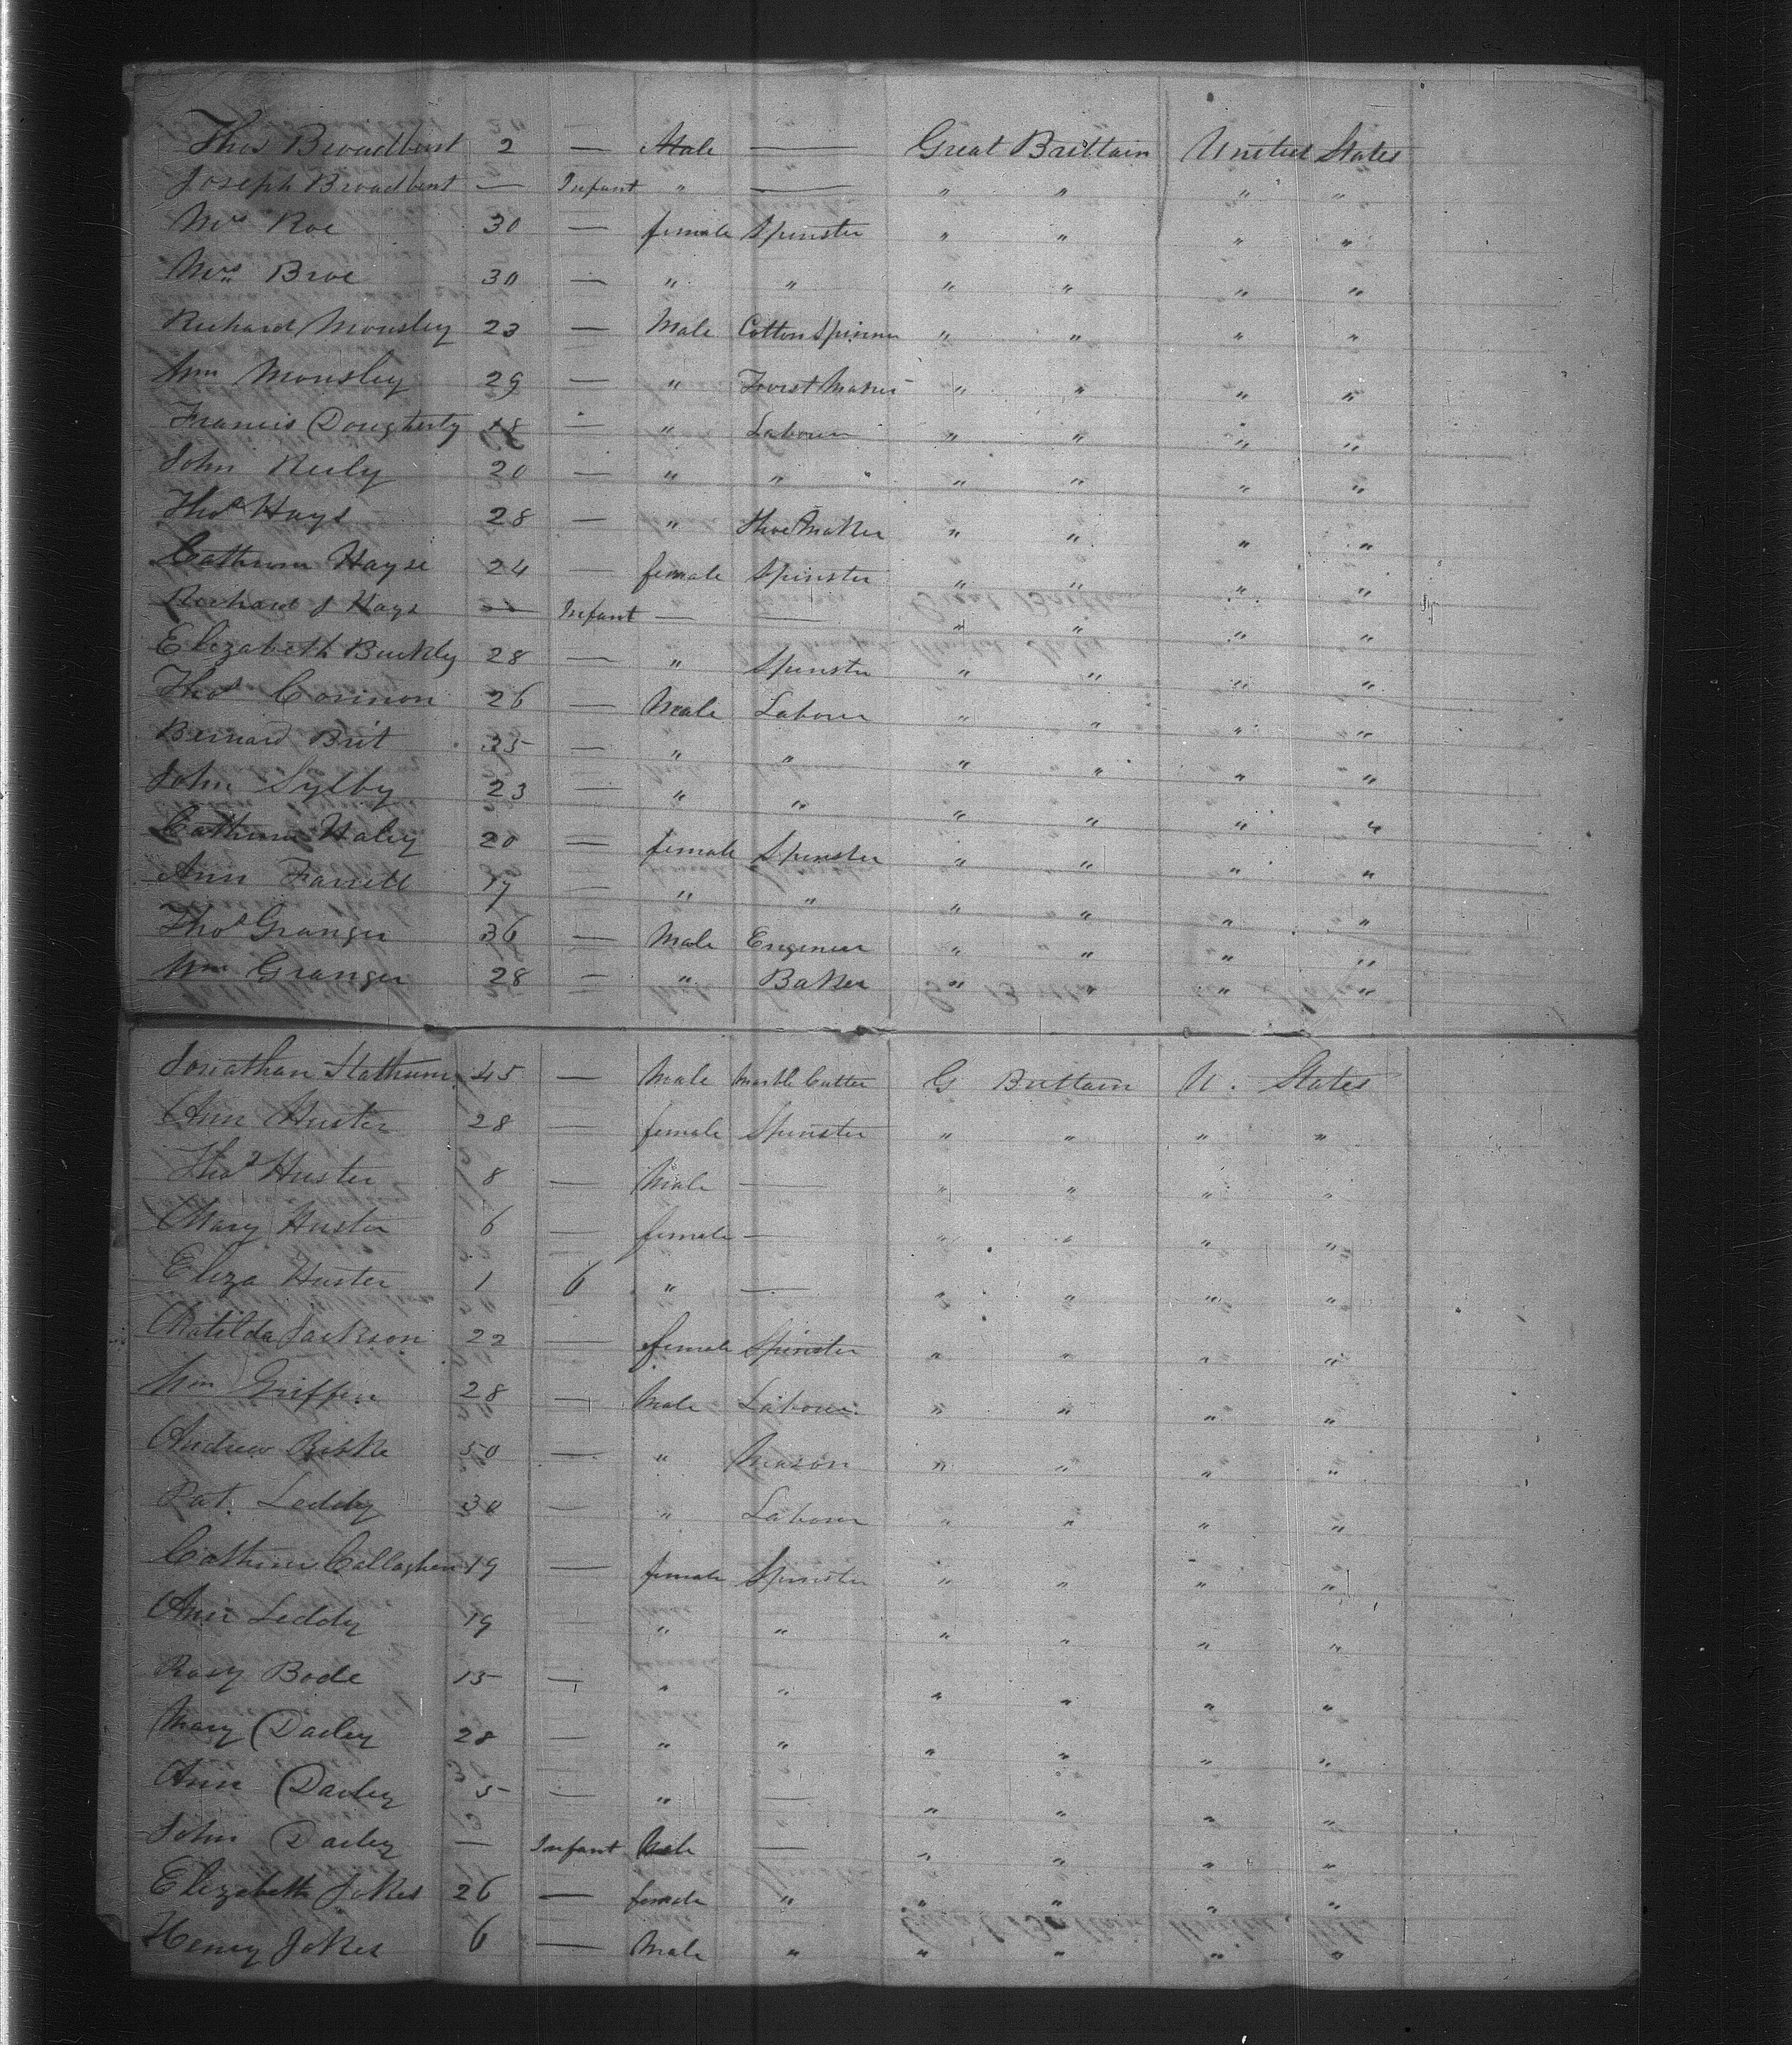 Thos Broadbent 2 — Male — Great Brittain United States
Joseph Broadbent — Infant " — " " " "
Mrs Roe 30 — female Spinster " " " "
Mrs Broe 30 — " " " " " "
Richard Mousley 23 — Male Cotton Spinner " " " "
Wm Mousley 29 — " " " " "
Francis Dougherty 18 — " Labourer " " " "
John Reily 20 — " " " " " "
Thos Hays 28 — " Shoe Maker " " " "
Catherine Hayse 24 — female Spinster " " " "
Richard J Hays — Infant — — " " " "
Elizabeth Buckley 28 — " Spinster " " " "
Thos Connon 26 — Male Labourer " " " "
Bernard Brit 35 — " " " " " "
John Sylby 23 — " " " " " "
Catherine Haley 20 — female Spinster " " " "
Ann Farrell 17 — " " " " " "
Thos Granger 36 — Male Engineer " " " "
Wm Granger 28 — " Baker " " " "
Jonathan Stathum 45 — Male Cutter G Brittain U. States
Ann Huster 28 — female Spinster " " " "
Thos Huster 8 — Male — " " " "
Mary Huster 6 — female — " " " "
Eliza Huster 1 6 " — " " " "
Matilda Jackson 22 — female Spinster " " " "
Wm Griffin 28 — Male Labourer " " " "
Andrew 50 — " Mason " " " "
Pat. Leddy 30 — " Labourer " " " "
Catherine Callaghan 19 — female Spinster " " " "
Ann Leddy 19 — " " " " " "
Rosy Bode 15 — " " " " " "
Mary Dailey 28 — " " " " " "
Ann Dailey 5 — " — " " " "
John Dailey — Infant Male — " " " "
Elizabeth Jokes 26 — female " " " " "
Henry Jokes 6 — Male " " " " "